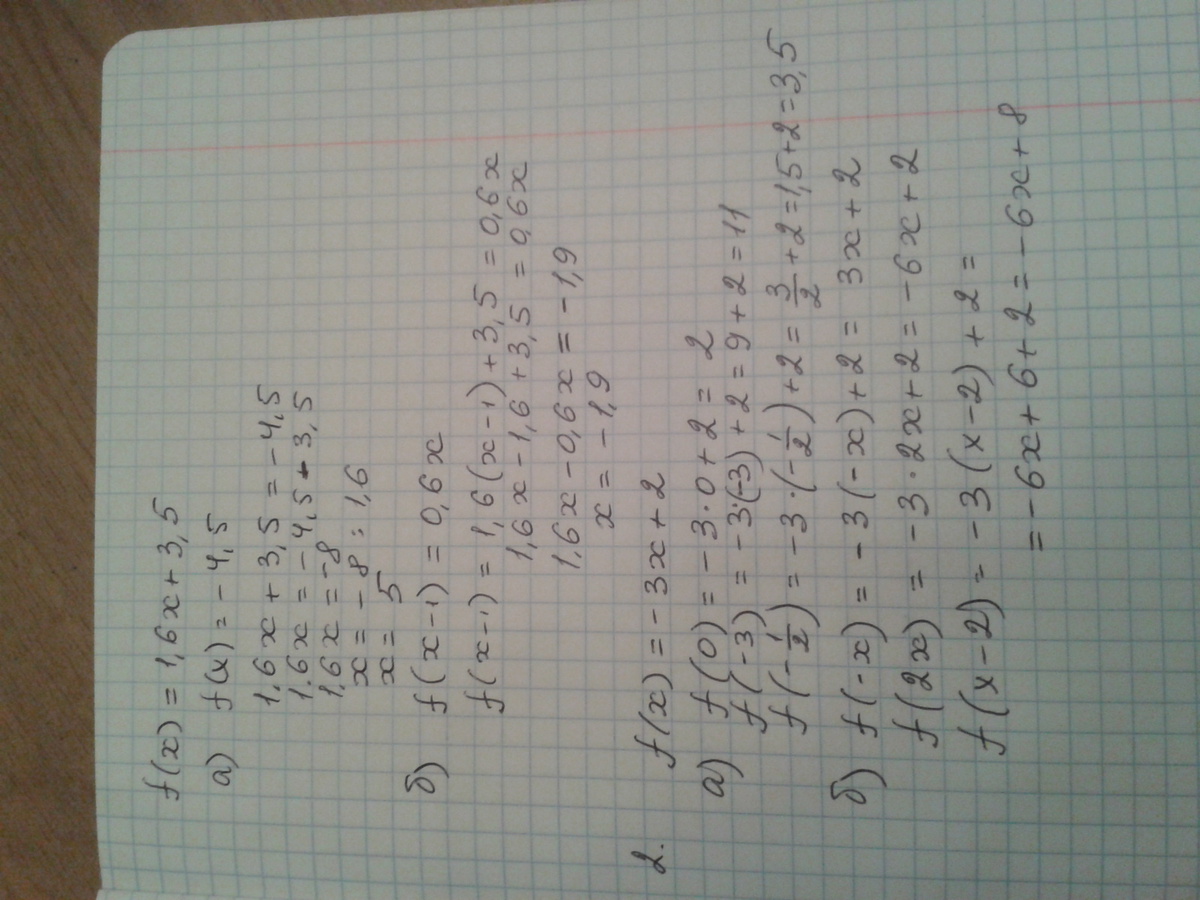 f(x) = 1,6x + 3,5
а) f(x) = - 4,5
1,6x + 3,5 = - 4,5
1.6x = - 4,5 - 3,5
1,6x = -8
x = - 8 : 1,6
x = 5
б) f(x-1) = 0,6x
f(x-1) = 1,6(x-1) + 3,5 = 0,6x
1,6x - 1,6 + 3,5 = 0,6x
1,6x - 0,6x = - 1,9
x = - 1,9
2. f(x) = - 3x + 2
а) f(0) = - 3·0 + 2 = 2
f(-3) = -3·(-3) + 2 = 9 + 2 = 11
f(-1/2) = - 3·(-1/2) + 2 = 3/2 + 2 = 1,5 + 2 = 3,5
б) f(-x) = - 3(-x) + 2 = 3x + 2
f(2x) = - 3·2x + 2 = - 6x + 2
f(x-2) = - 3(x-2) + 2 =
= - 6x + 6 + 2 = - 6x + 8